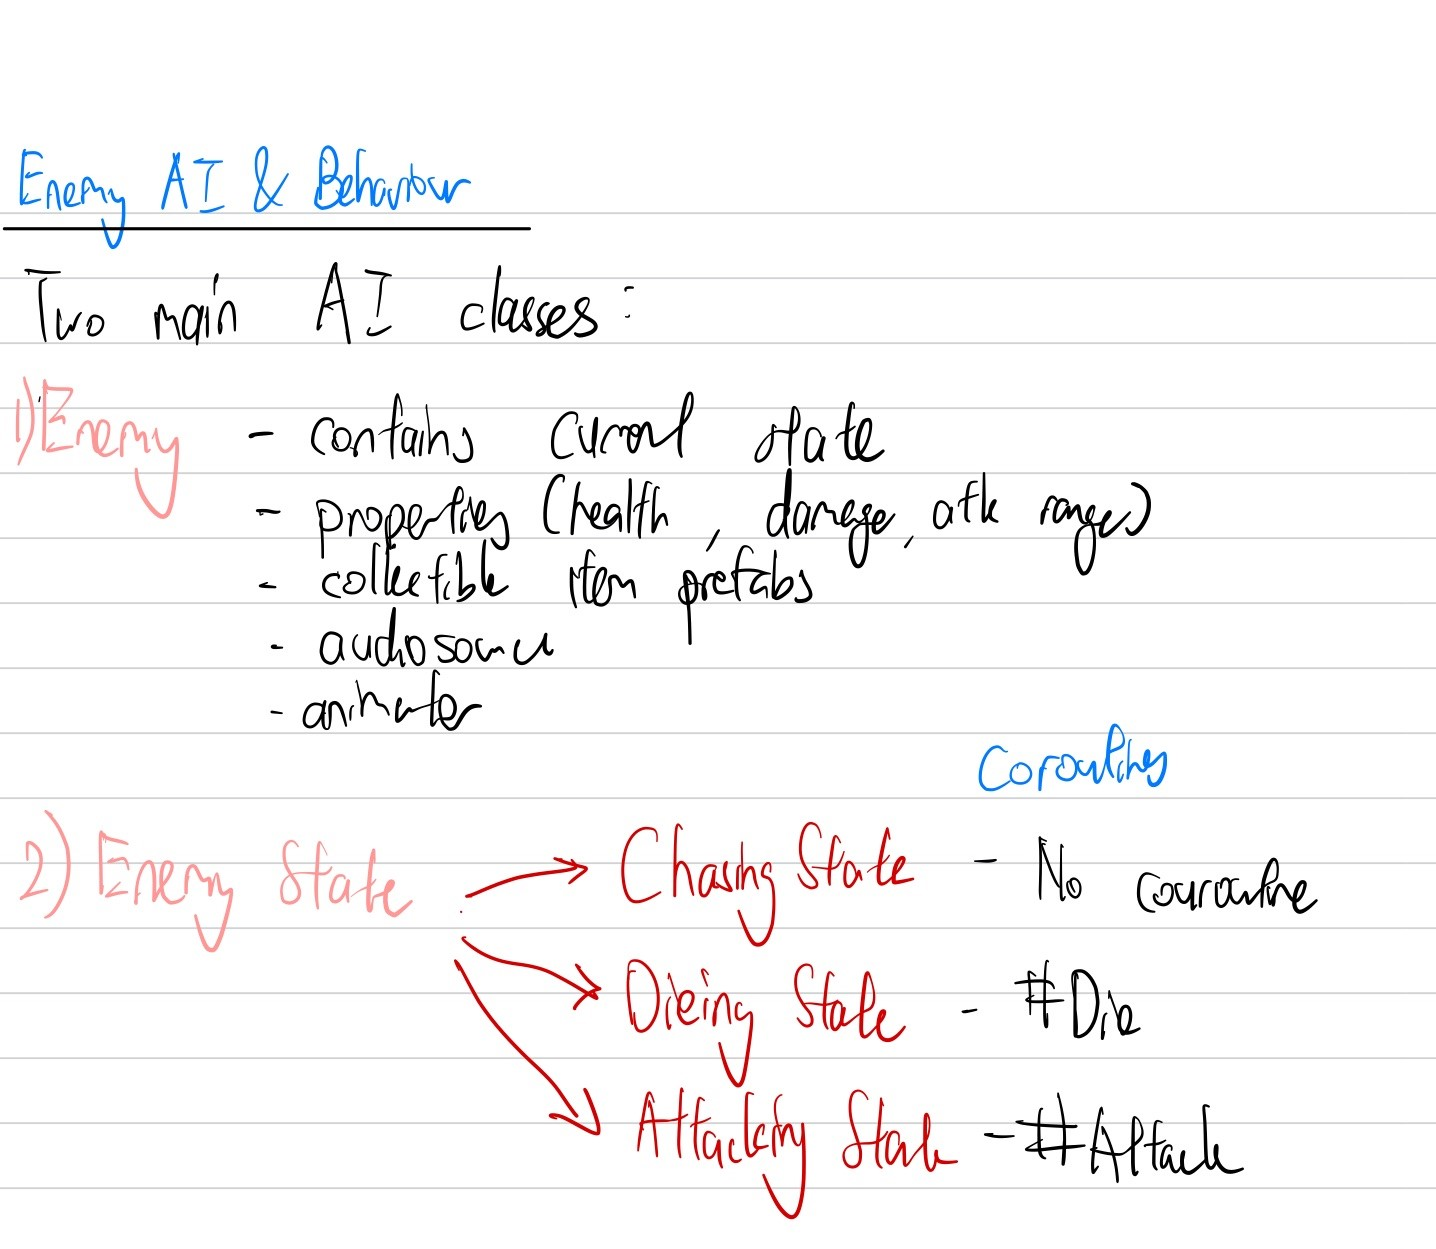 Enemy AI & Behaviour
Two main AI classes:
1) Enemy - contains current state
- properties (health, damage, atk range)
- collectible item prefabs
- audiosource
- animator
Coroutines
2) Enemy State → Chasing State - No couroutine
→ Dieing State - #Die
→ Attacking State - #Attack